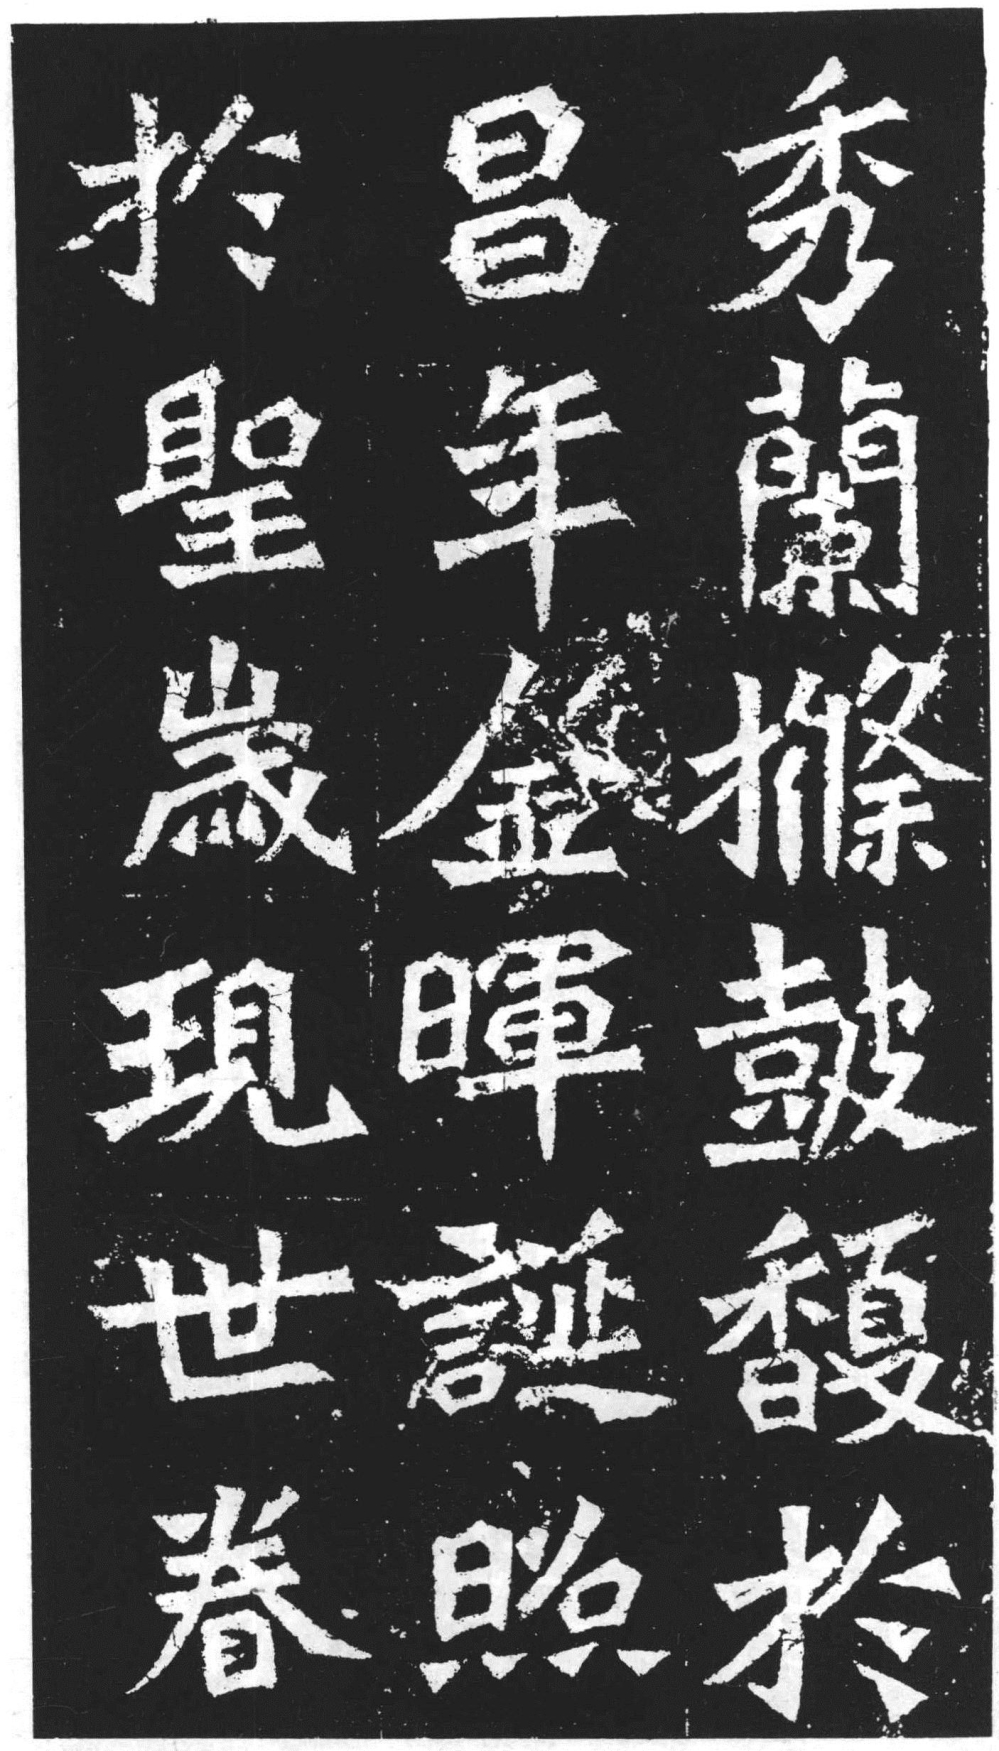 秀蘭條皷馥於
昌年金暉誕照
於聖歲現世眷